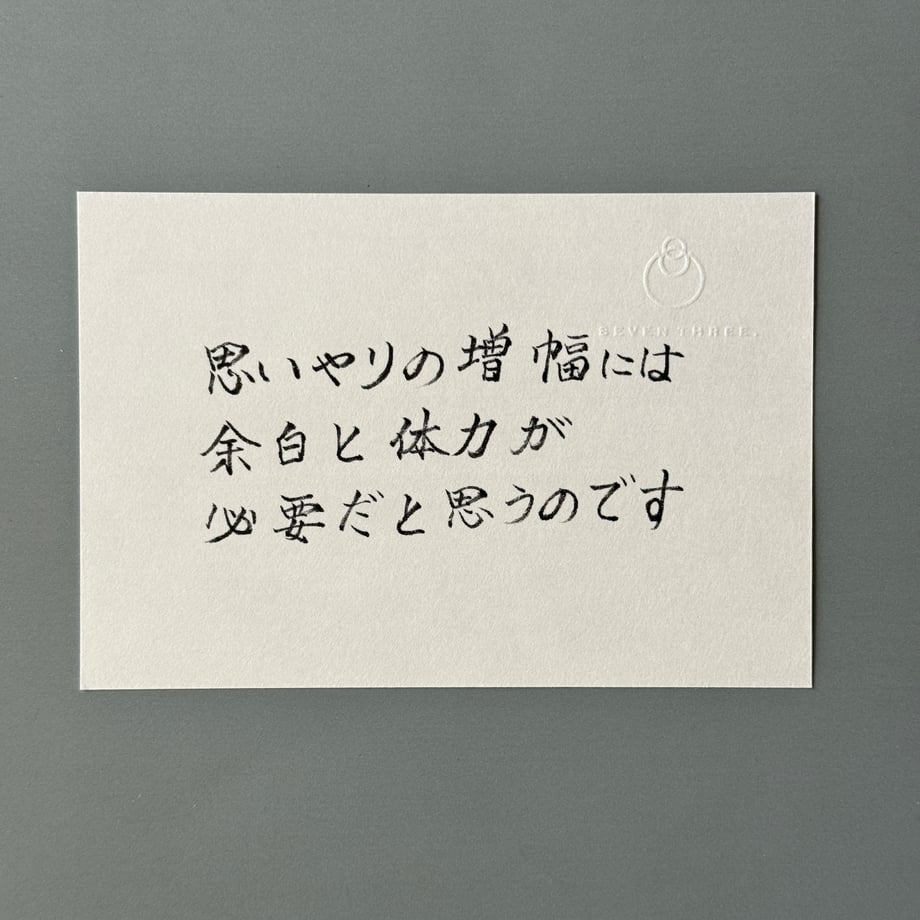 SEVEN THREE.
思いやりの増幅には
余白と体力が
必要だと思うのです